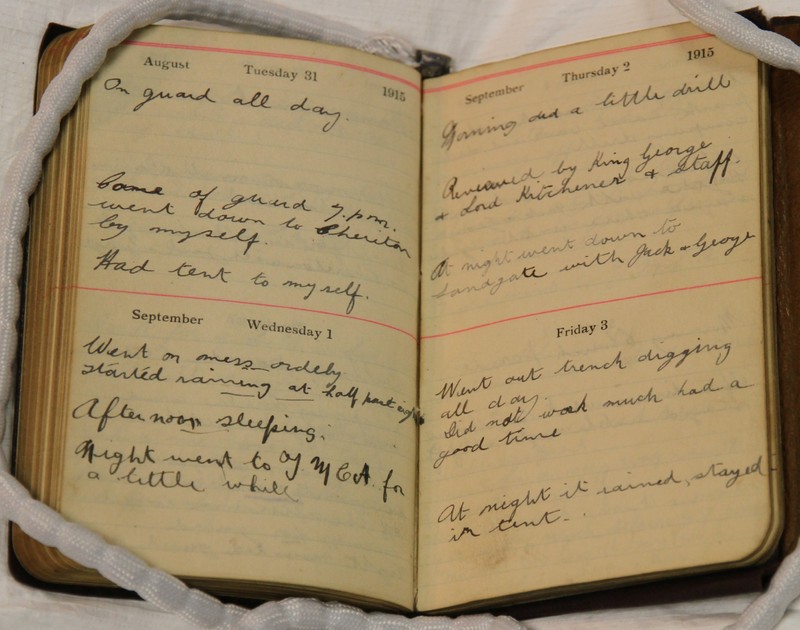 August Tuesday 31 1915
On guard all day.
Came of guard 7.p.m.
went down to Cheriton
by myself.
Had tent to myself.
September Wednesday 1
Went on mess ordely
started raining at half past
Afternoon sleeping.
Night went to Y.M.C.A. for
a little while
September Thursday 2 1915
Morning did a little drill
Reviewed by King George
& Lord Kitchener & Staff.
At night went down to
Sandgate with Jack & George
Friday 3
Went out trench digging
all day.
Did not work much had a
good time
At night it rained, stayed
in tent.